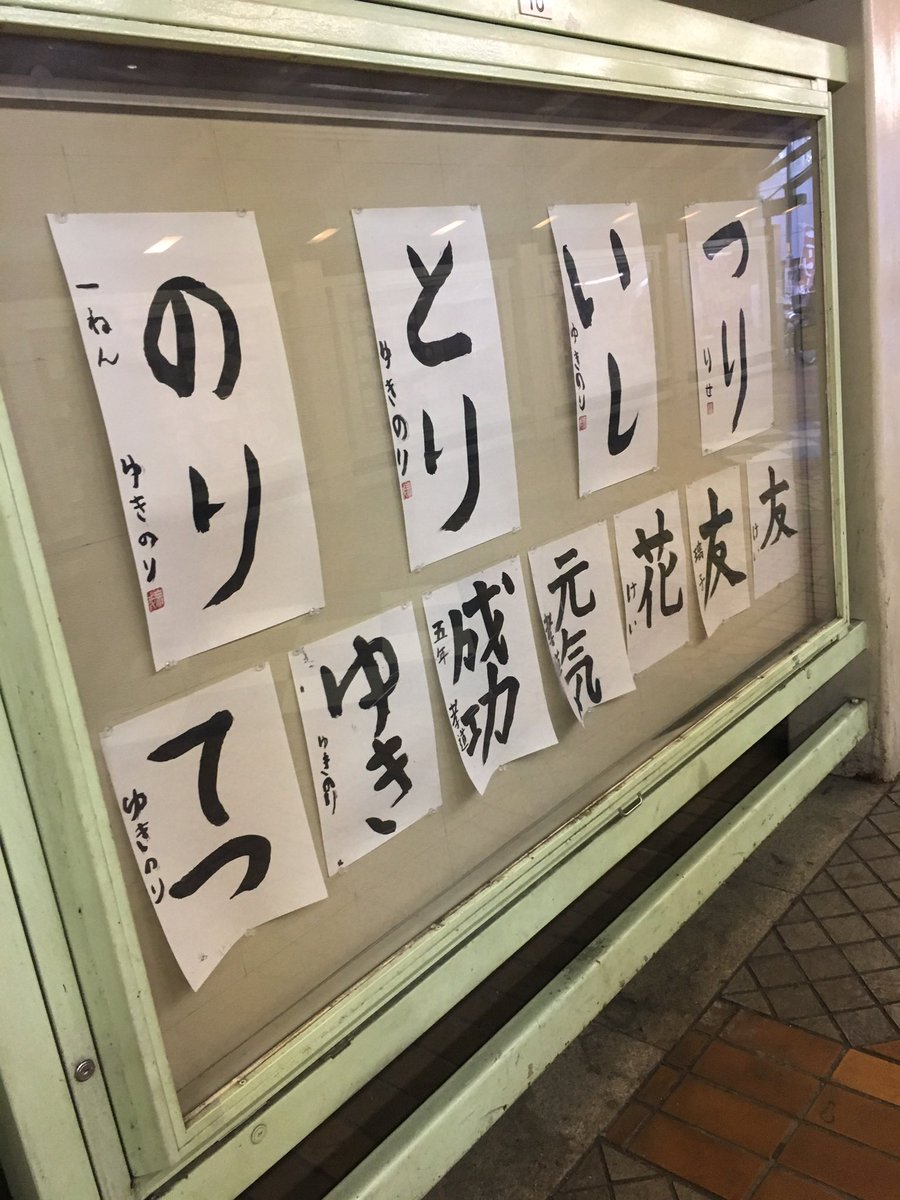 10
つり
りせ
いし
ゆきのり
とり
ゆきのり
のり
一ねん
ゆきのり
友
け
友
花
けい
元気
成功
五年
ゆき
ゆきのり
てつ
ゆきのり